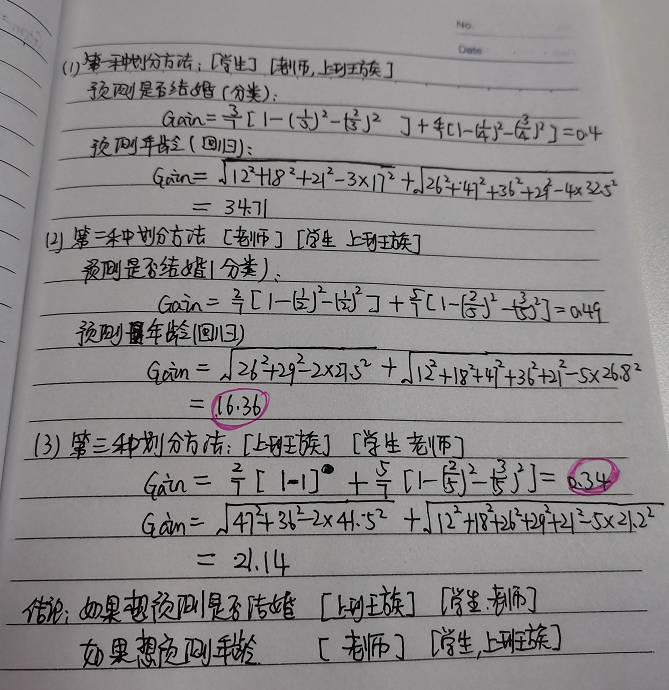 No.
Date
(1) 第一种划分方法: [学生] [老师,上班族]
预测是否结婚(分类):
Gain = 3/7 [1-(1/3)²-(2/3)² ] + 4/7 [1-(1/4)²-(3/4)²] = 0.4
预测年龄(回归):
Gain = √12²+18²+21²-3×17² + √26²+47²+36²+29²-4×32.5²
= 34.71
(2) 第二种划分方法 [老师] [学生 上班族]
预测是否结婚(分类):
Gain = 2/7 [1-(1/2)²-(1/2)²] + 5/7 [1-(2/5)²-(3/5)²] = 0.49
预测年龄(回归)
Gain = √26²+29²-2×27.5² + √12²+18²+47²+36²+21²-5×26.8²
= 16.36
(3) 第三种划分方法: [上班族] [学生 老师]
Gain = 2/7 [1-1] + 5/7 [1-(2/5)²-(3/5)²] = 0.34
Gain = √47²+36²-2×41.5² + √12²+18²+26²+29²+21²-5×21.2²
= 21.14
结论: 如果想预测是否结婚 [上班族] [学生.老师]
如果想预测年龄 [老师] [学生,上班族]